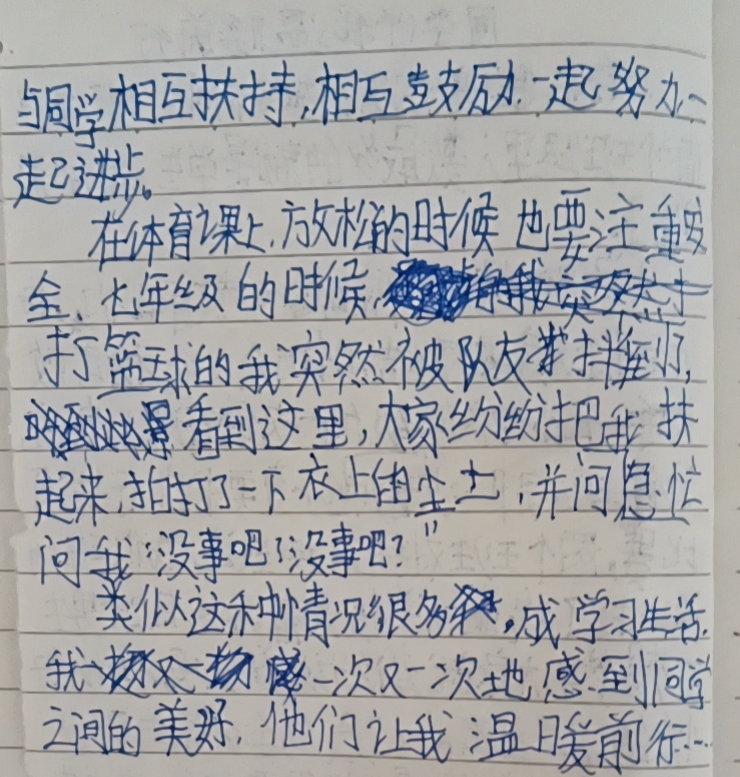 与同学相互扶持,相互鼓励.一起努力一
起进步。
在体育课上,放松的时候也要注重安
全、七年级的时候,
打篮球的我突然被队友拌到了,
看到这里,大家纷纷把我扶
起来,拍打了一下衣上由尘土,并问急忙
问我:没事吧?没事吧?"
类似这种情况很多,成学习生活.
我一次又一次地感到同学
之间的美好.他们让我温暖前行…